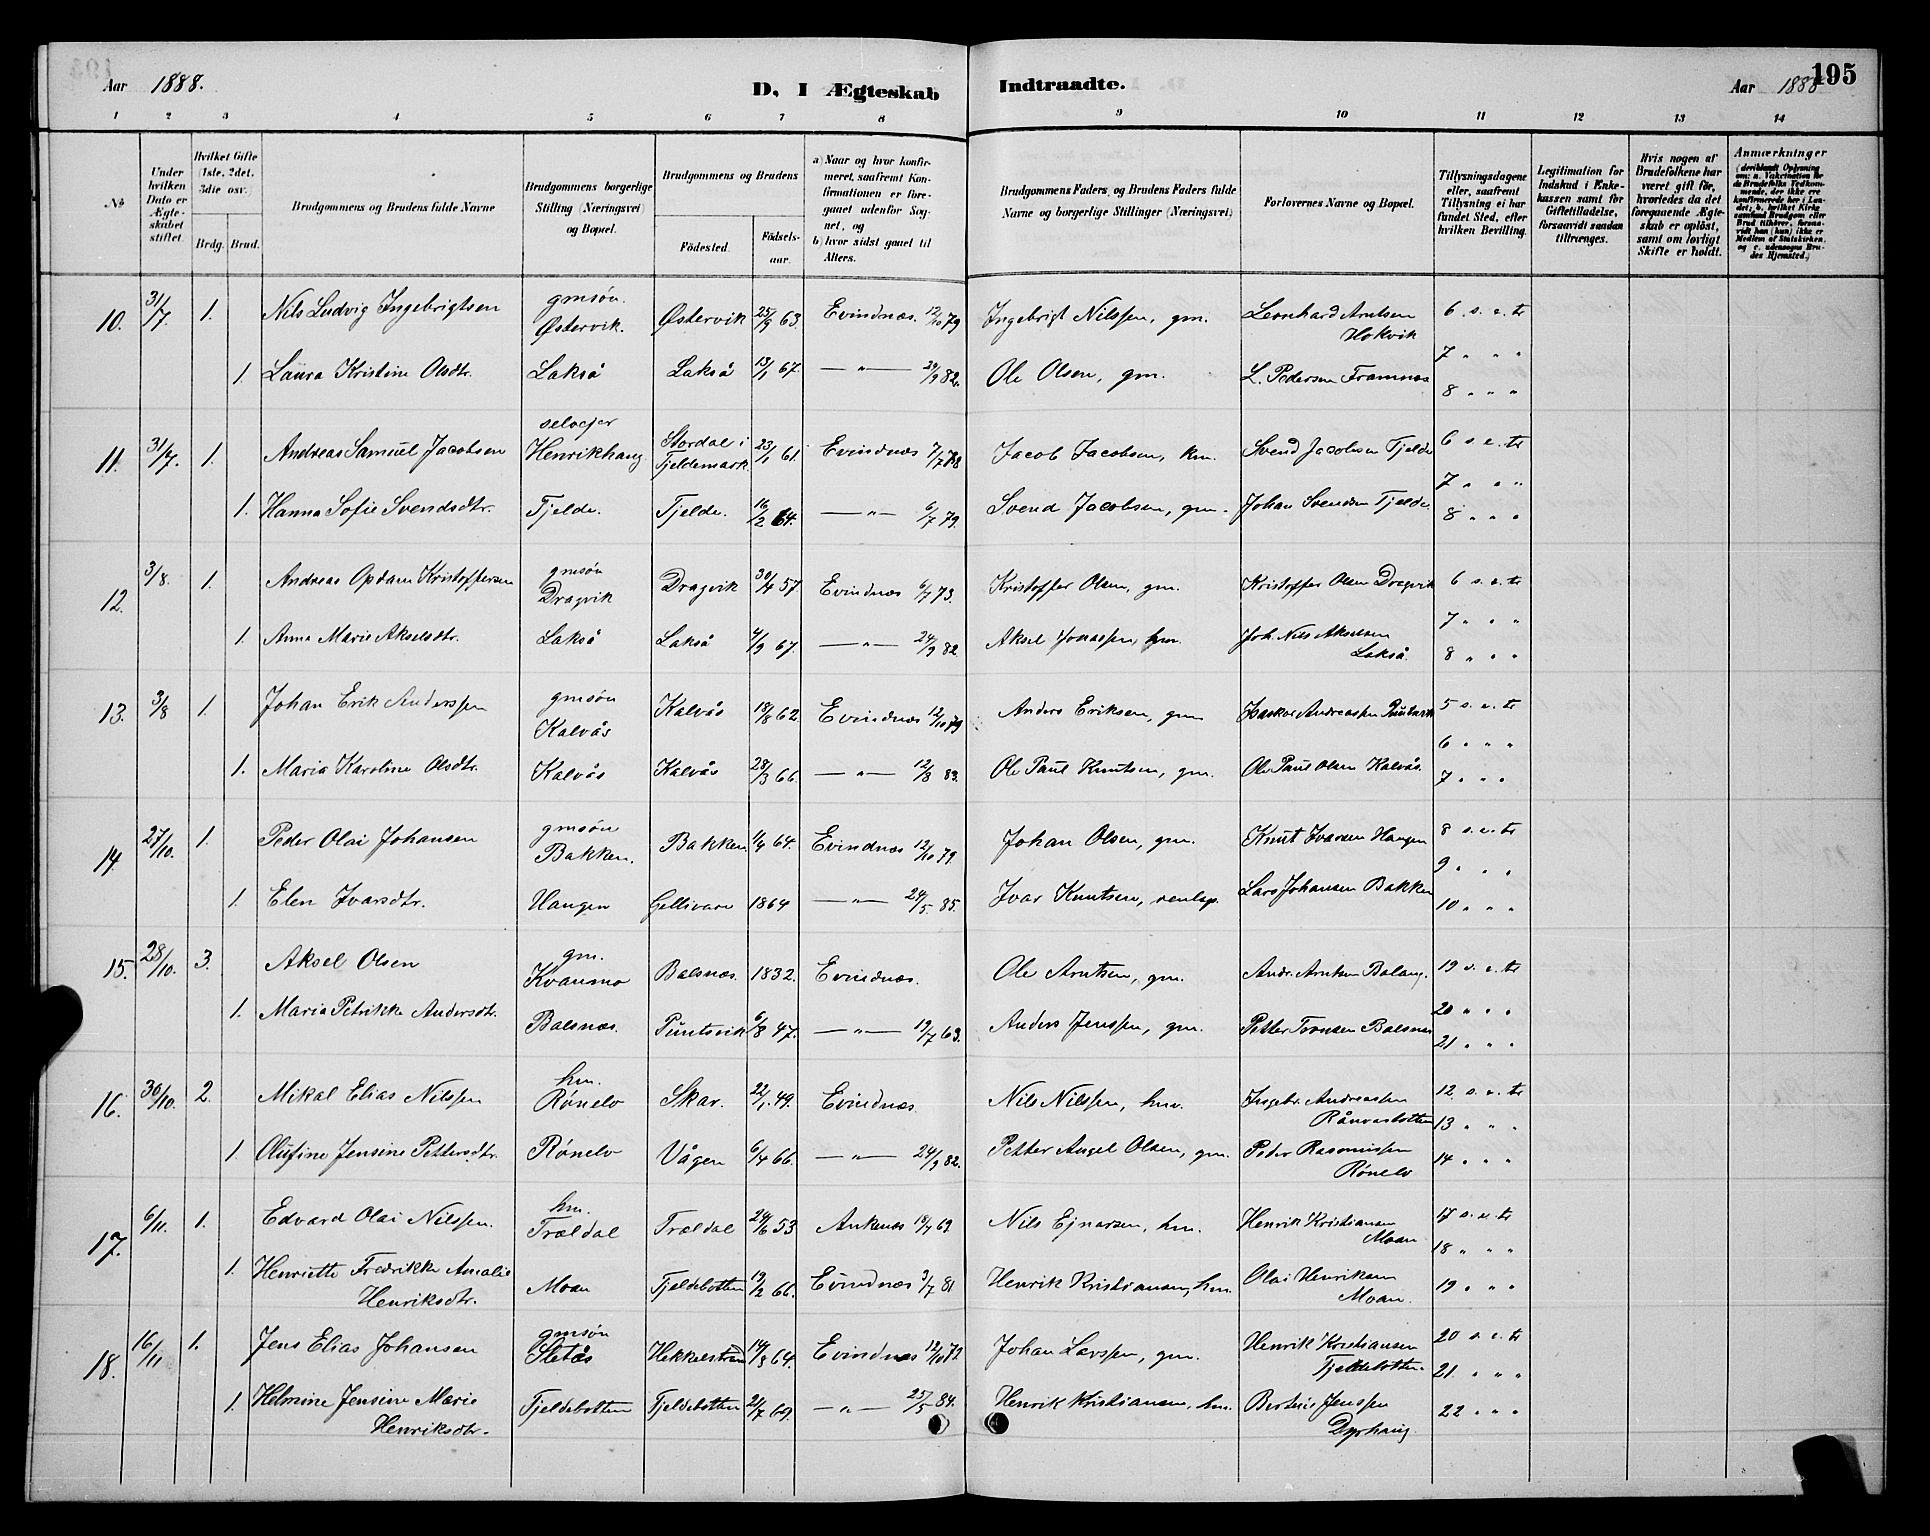 Aar 1888.
D, I Ægteskab Indtraadte.
Aar 1888
195
1 2 3 4 5 6 7 8 9 10 11 12 13 14
№
Under hvilken Dato er Ægteskabet stiftet.
Hvilket Gifte (1ste, 2det, 3die osv.)
Brdg. Brud.
Brudgommens og Brudens fulde Navne
Brudgommens borgerlige Stilling (Næringsvei) og Bopæl.
Brudgommens og Brudens
Fødested. Fødselsaar.
a) Naar og hvor konfirmeret, saafremt Konfirmationen er foregaaet udenfor Sognet, og
b) hvor sidst gaaet til Alters.
Brudgommens Faders, og Brudens Faders fulde Navne og borgerlige Stillinger (Næringsvei)
Forlovernes Navne og Bopæl.
Tillysningsdagene eller, saafremt Tillysning ei har fundet Sted, efter hvilken Bevilling.
Legitimation for Indskud i Enkekassen samt for Giftetilladelse, forsaavidt saadan tiltrænges.
Hvis nogen af Brudefolkene har været gift før, hvorledes da det foregaaende Ægteskab er opløst, samt om lovligt Skifte er holdt.
Anmærkninger
10. 31/7. 1. Nils Ludvig Ingebrigtsen gmsøn. Østervik. Østervik 25/9 63. Evindnæs. 12/10 79 Ingebrigt Nilssen, gm. Leonhard Arntsen Hokvik 6. s. e. tr
7 " " "
1. Laura Kristine Olsdtr. Lakså Lakså 13/1 67. — " — 24/9 82. Ole Olsen, gm. L. Pedersen Framnes
8 " " "
11. 31/7. 1. Andreas Samuel Jacobsen selvejer Henrikhaug Stordal i Tjeldemark 23/1 61. Evindnæs 7/7 78 Jacob Jacobsen, km. Svend Jacobsen Tjelde 6 s. e. tr
7 " " "
1. Hanna Sofie Svendsdtr. Tjelde. Tjelde. 16/2 64. — " — 6/7 79. Svend Jacobsen, gm. Johan Svendsen Tjelde
8 " " "
12. 3/8. 1. Andreas Opdam Kristoffersen gmsøn Dragvik Dragvik 30/4 57. Evindnæs 6/7 73. Kristoffer Olsen, gm. Kristoffer Olsen Dragvik 6 s. e. tr
7 " " "
1. Anna Marie Akselsdtr. Lakså Lakså 4/9 67. — " — 24/9 82. Aksel Jonassen, hm. Joh. Nils Akselsen Lakså.
8 " " "
13. 3/8 1. Johan Erik Anderssen gmsøn Kalvås Kalvås 18/8 62. Evindnæs 12/10 79 Anders Eriksen, gm Andreassen 5 s. e. tr
6 " " "
1. Maria Karoline Olsdtr. Kalvås Kalvås 28/3 66. — " — 12/8 83. Ole Paul Knutsen, gm. Ole Paul Olsen Kalvås.
7 " " "
14. 27/10. 1. Peder Olai Johansen gmsøn Bakken. Bakken 1/4 64. Evindnæs 12/10 79. Johan Olsen, gm. Knut Ivarsen Haugen 8 s. e. tr
9 " " "
1. Elen Ivarsdtr. Haugen Gellivare 1864 — " — 24/5. 85. Ivar Knutsen, renlap. Lars Johansen Bakken
10 " " "
15. 28/10. 3. Aksel Olsen gm. Kvanmo Balsnæs. 1832. Evindnæs. Ole Arntsen, gm. Andr. Arntsen Balang. 19 s. e. tr
20 " " "
1. Maria Petrikke Andersdtr. Balsnæs. Puntsvik 6/8 47. — " — 19/7 63. Anders Jenssen, gm. Petter Tronsen Balsnæs
21 " " "
16. 30/10. 2. Mikal Elias Nilssen hm. Rønelv Skar. 22/1. 49. Evindnæs Nils Nilssen, hm. Ingebr. Andreassen Rånvasbotten 12 s. e. tr
13 " " "
1. Olufine Jensine Pettersdtr. Rønelv Vågen 6/4 66. — " — 24/9 82. Petter Angel Olsen, gm. Peder Rasmussen Rønelv
14 " " "
17. 6/11. 1. Edvard Olai Nilssen. hm. Trældal Trældal 24/6 53 Ankenes 18/7 69 Nils Ejnarsen, hm. Henrik Kristiansen Moan 17 s. e. tr
18 " " "
1. Henriette Fredrikke Amalie Henriksdtr. Moan Tjeldebotten 19/2 66. Evindnæs 3/7 81 Henrik Kristiansen, hm. Olai Henriksen Moan.
19 " " "
18. 16/11 1. Jens Elias Johansen gmsøn Sletås Hekkelstran 14/8 64. Evindnæs 12/10 79 Johan Larssen, gm. Henrik Kristiansen Tjeldebotten. 20 s. e. tr
21 " " "
1. Helmine Jensine Marie Henriksdtr. Tjeldebotten Tjeldebotten 21/7 69. — " — 25/5 84. Henrik Kristiansen, hm. Bertéus Jenssen Dyrhaug
22 " " "